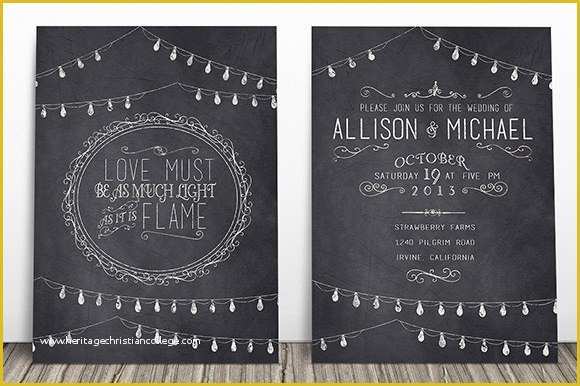 LOVE MUST
BE AS MUCH LIGHT
AS IT IS FLAME
PLEASE JOIN US FOR THE WEDDING OF
ALLISON & MICHAEL
OCTOBER
SATURDAY 19 AT FIVE PM
2013
STRAWBERRY FARMS
1240 PILGRIM ROAD
IRVINE, CALIFORNIA
www.heritagechristiancollege.com